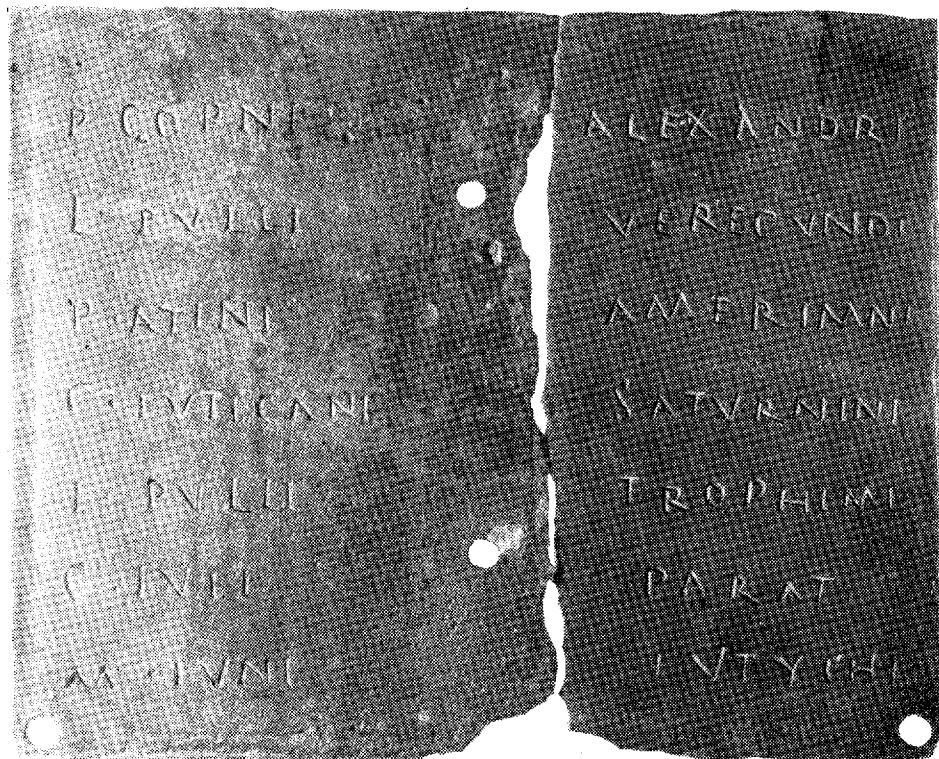 P CORNELI ALEXANDRI
L · PULLI VERECVNDI
P · ATINI AMERIMNI
C · TVTICANI SATVRNINI
L PVLLI TROPHIMI
C · IVLI PARATI
M · IVNI EVTYCHI